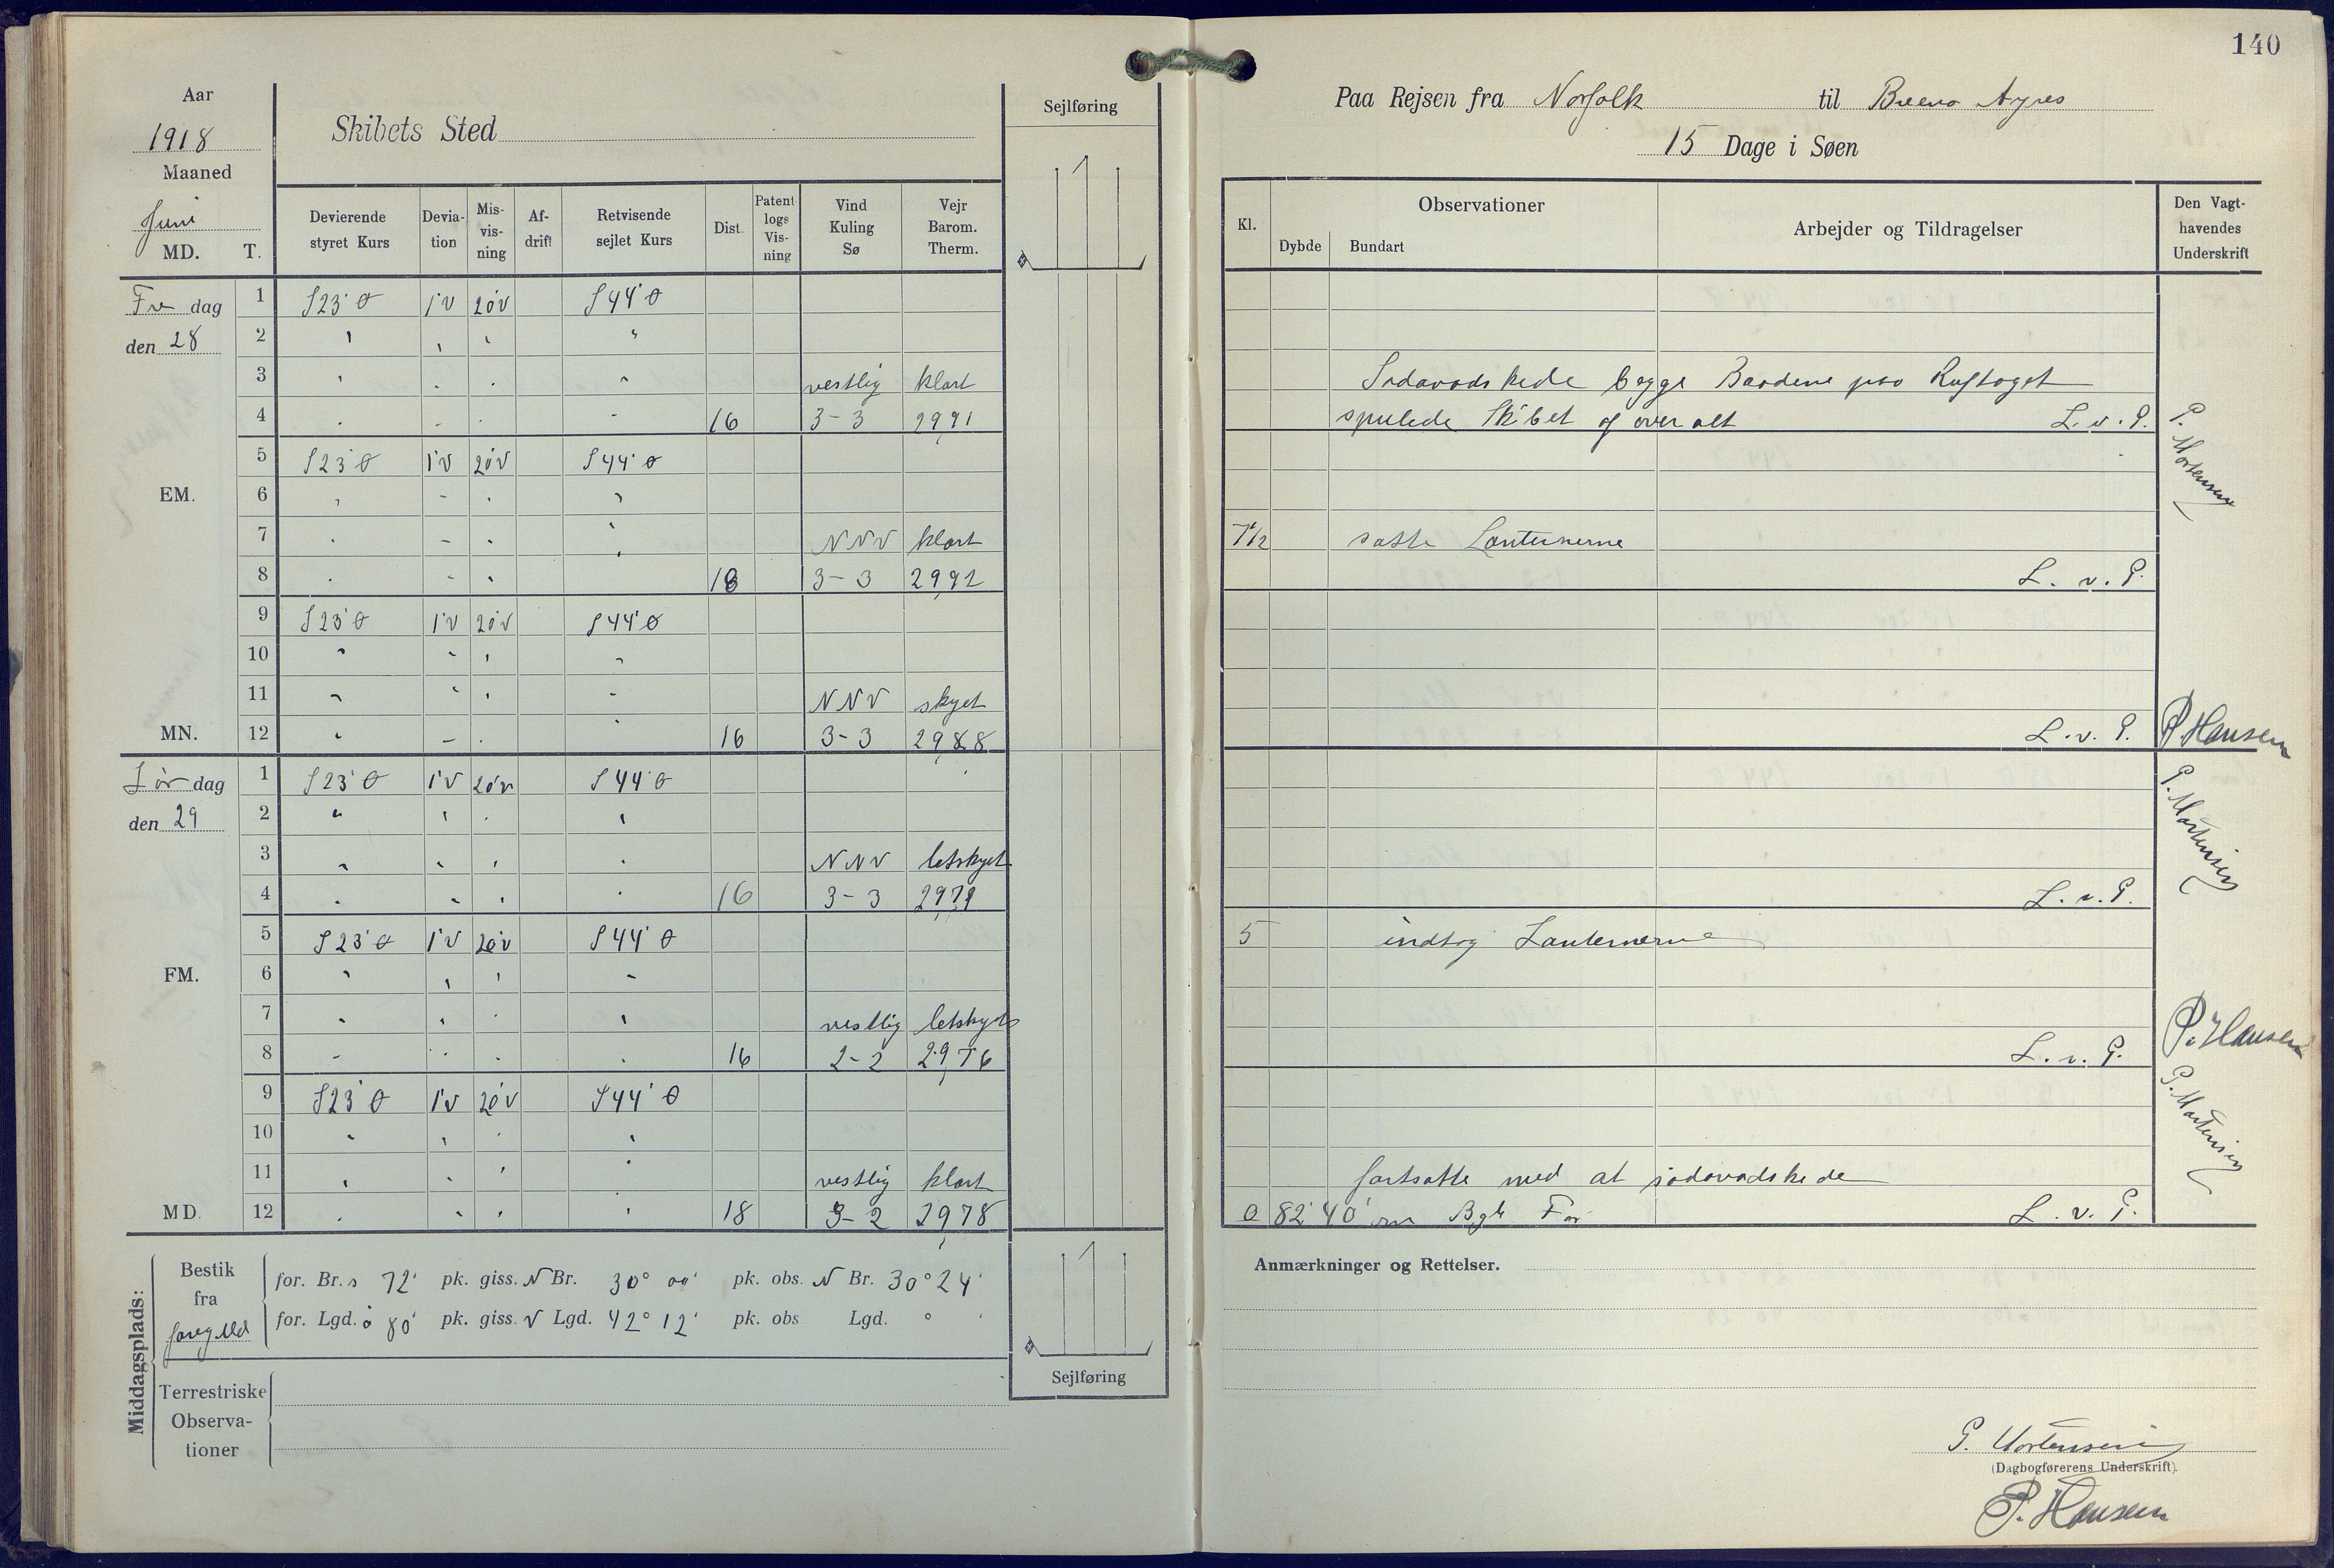 140
Aar
1918
Maaned
Juni
MD. T.
Skibets Sted
Sejlføring
Devierende styret Kurs
Devia- tion
Mis- vis- ning
Af- drift
Retvisende sejlet Kurs
Dist.
Patent logs Vis- ning
Vind Kuling Sø
Vejr Barom. Therm.
Fre dag 1 S23°Ø 1°V 20°V S44°Ø
den 28 2 " " " "
3 " " " " vestlig klart
4 " " " " 16 3-3 29,91
5 S23°Ø 1°V 20°V S44°Ø
EM. 6 " " " "
7 " " " " NNV klart
8 " " " " 18 3-3 29,92
9 S23°Ø 1°V 20°V S44°Ø
10 " " " "
11 " " " " NNV skyet
MN. 12 " " " " 16 3-3 29,88
Lør dag 1 S23°Ø 1°V 20°V S44°Ø
den 29 2 " " " "
3 " " " " NNV letskyet
4 " " " " 16 3-3 29,79
5 S23°Ø 1°V 20°V S44°Ø
FM. 6 " " " "
7 " " " " vestlig letskyet
8 " " " " 16 2-2 29,76
9 S23°Ø 1°V 20°V S44°Ø
10 " " " "
11 " " " " vestlig klart
MD. 12 " " " " 18 3-2 29,78
Middagsplads:
Bestik fra
for. Br. s 72' pk. giss. N Br. 30° 00' pk. obs. N Br. 30° 24'
for. Lgd. ø 80' pk. giss. V Lgd. 42° 12' pk. obs Lgd. ° '
Terrestriske Observa- tioner
Sejlføring
Paa Rejsen fra Norfolk til Bueno Ayres
15 Dage i Søen
Kl.
Observationer
Dybde Bundart
Arbejder og Tildragelser
Den Vagt- havendes Underskrift
Sodavadskede begge Baadene paa Ruftaget
spulede Skibet af over alt L. v. P.
P. Mortensen
7 1/2 satte Lanternerne
L. v. P.
L. v. P. P. Hansen
P. Mortensen
L. v. P.
5 indtog Lanternerne
L. v. P. P. Hansen
P. Mortensen
fortsatte med at sodavadskede
82° 40' L. v. P.
Anmærkninger og Rettelser.
P. Mortensen
(Dagbogførerens Underskrift).
P. Hansen